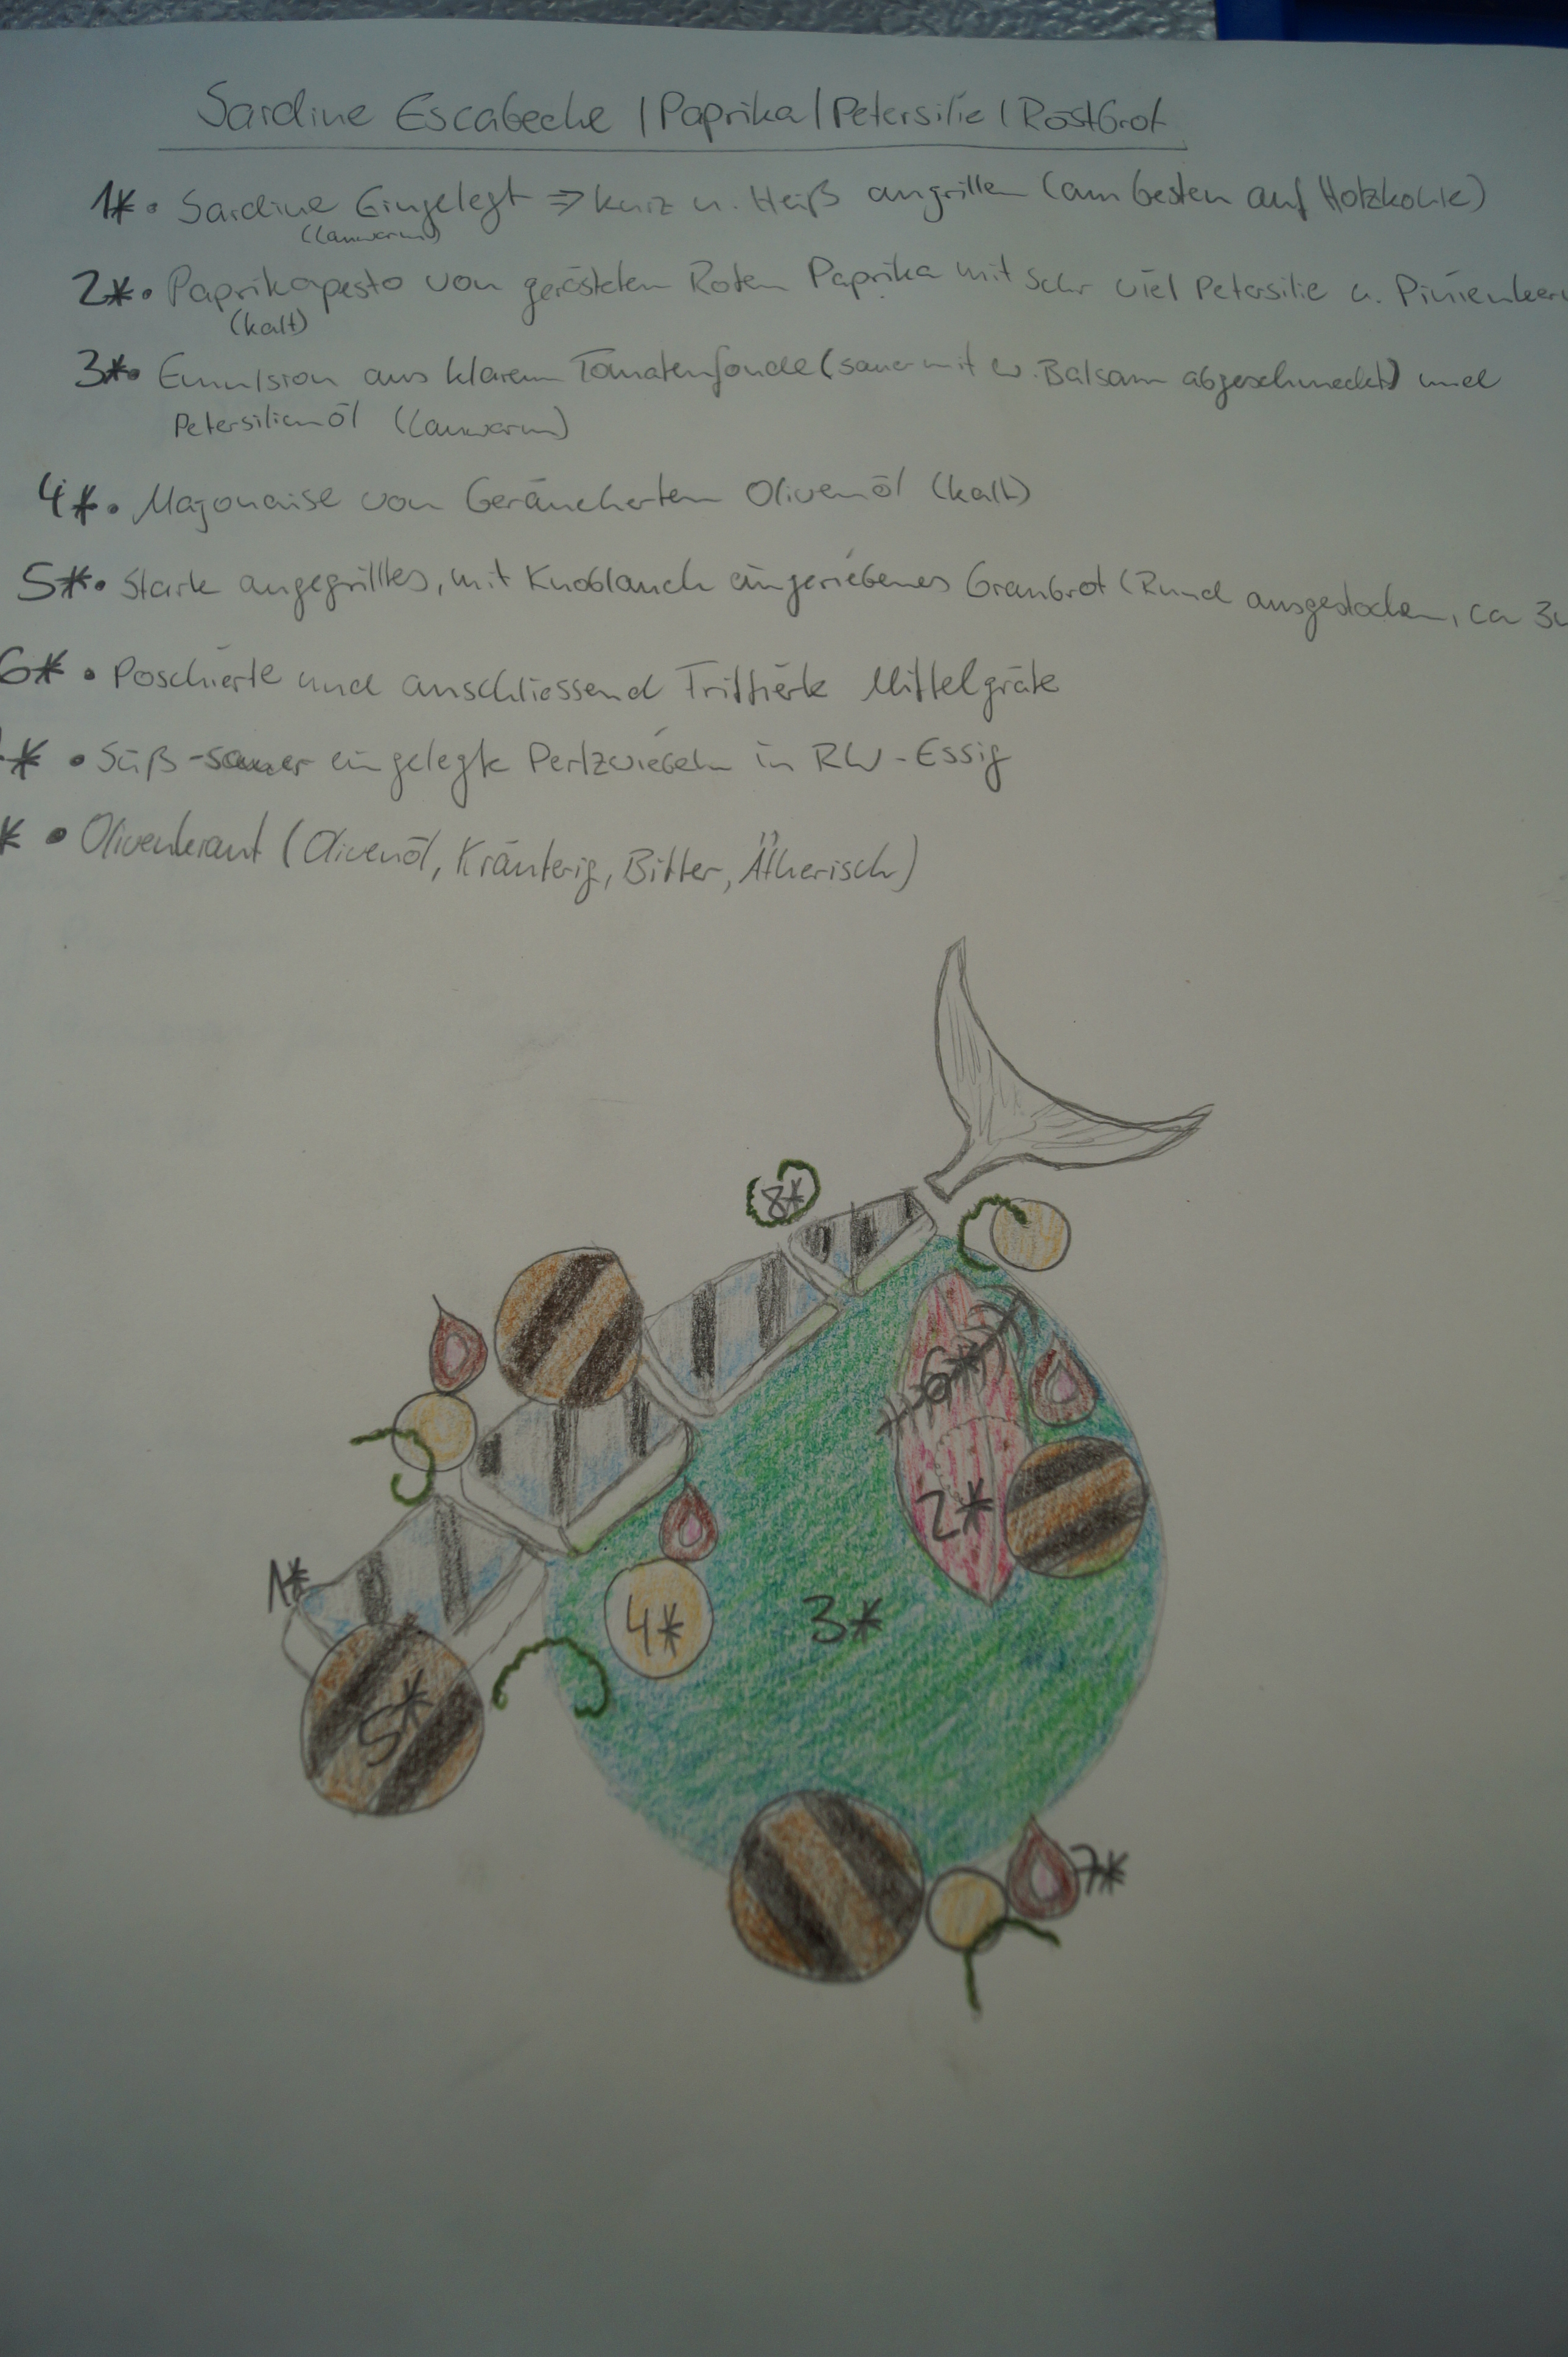 Sardine Escabeche | Paprika | Petersilie | Röstbrot
1* • Sardine Eingelegt ⇒ kurz u. Heiß angrillen (am besten auf Holzkohle)
(lauwarm)
2* • Paprikapesto von gerösteten Roten Paprika mit sehr viel Petersilie u. Pinienker
(kalt)
3* • Emulsion aus klarem Tomatenfonde (sauer mit w. Balsam abgeschmeckt) und
Petersilienöl (lauwarm)
4* • Majonaise von Geräuchertem Olivenöl (kalt)
5* • Stark angegrilltes, mit Knoblauch eingeriebenes Graubrot (Rund ausgestochen, ca 3
6* • Poschierte und anschliessend Frittierte Mittelgräte
* • Süß-sauer eingelegte Perlzwiebeln in RW-Essig
* • Olivenkraut (Olivenöl, Kräuterig, Bitter, Ätherisch)
8*
6*
2*
1*
4*
3*
5*
7*